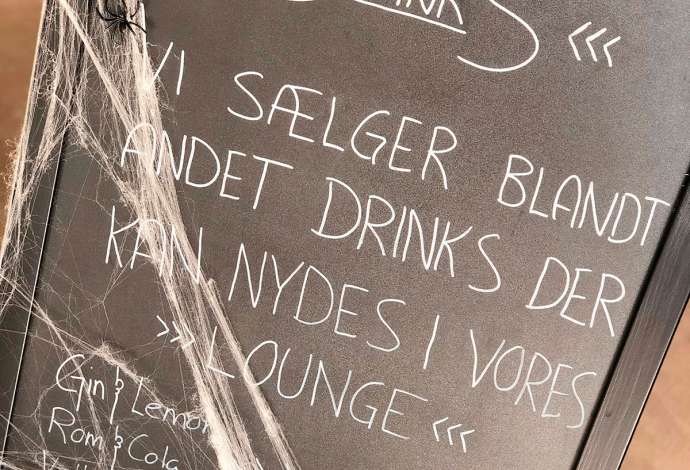 <<<
VI SÆLGER BLANDT
ANDET DRINKS DER
KAN NYDES I VORES
>> LOUNGE <<<
Gin & Lemon
Rom & Cola